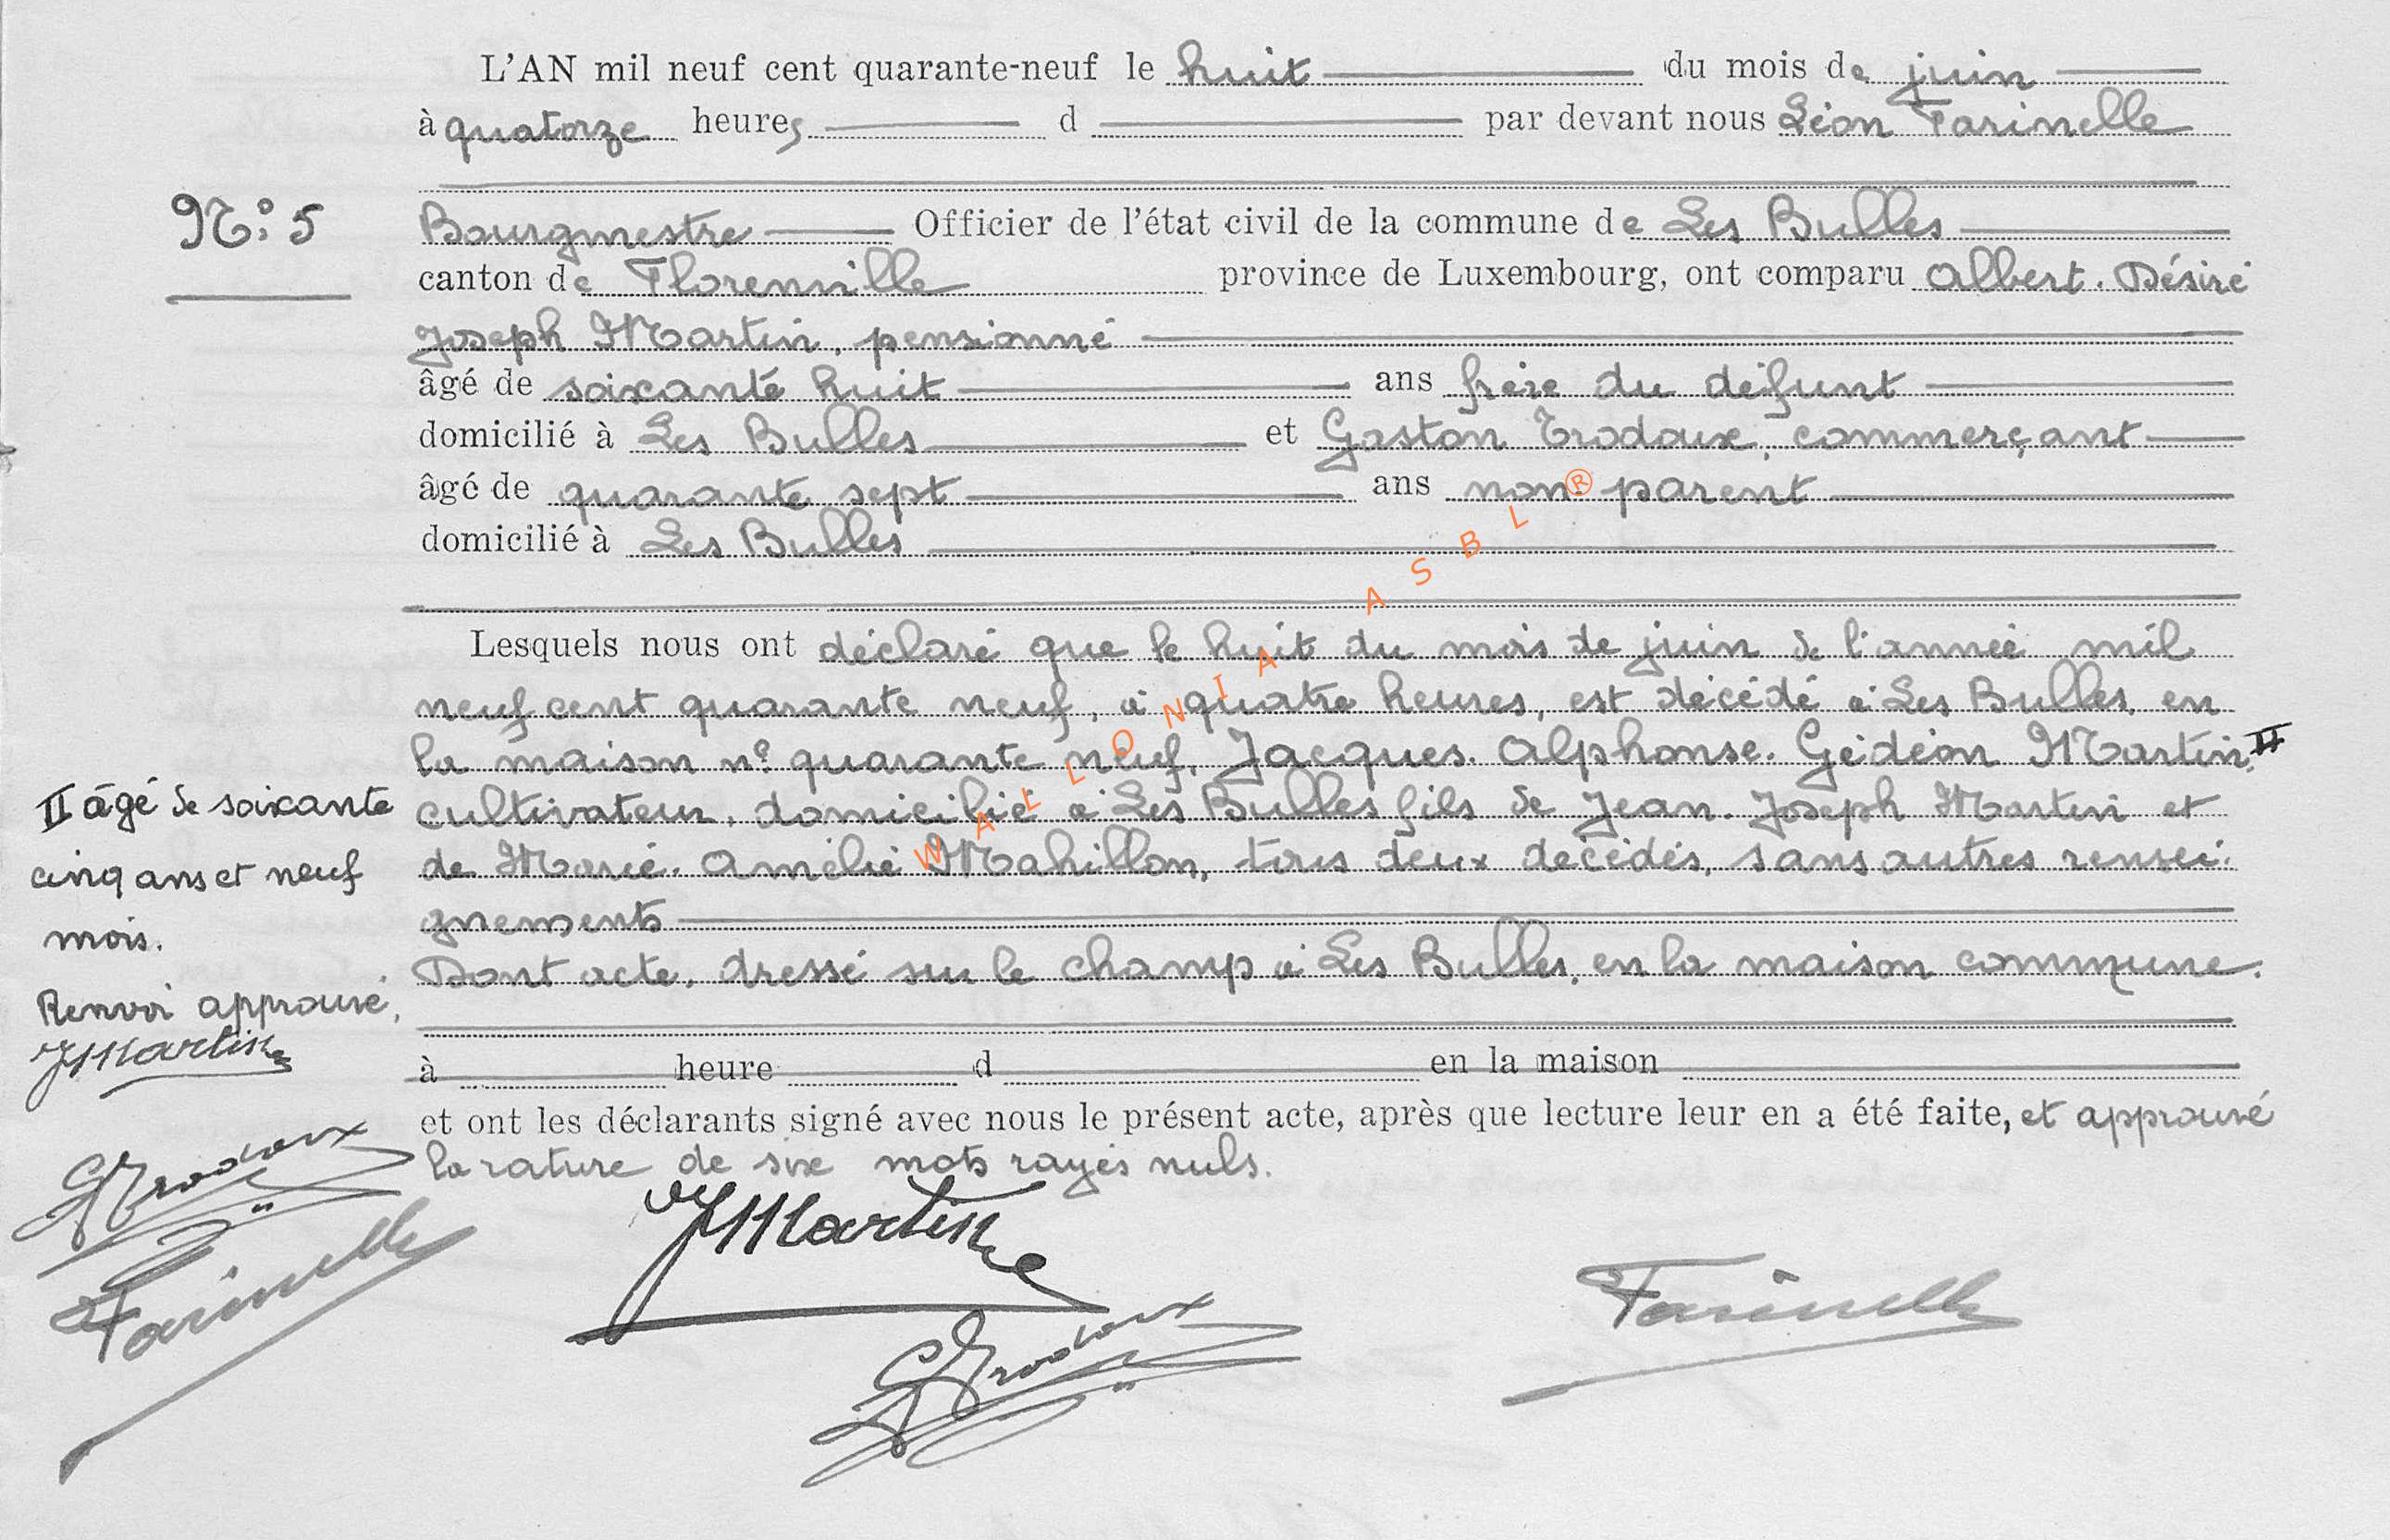 L'AN mil neuf cent quarante-neuf le huit du mois de juin
à quatorze heures d par devant nous Léon Farinelle
N° 5
Bourgmestre Officier de l'état civil de la commune de Les Bulles
canton de Florenville province de Luxembourg, ont comparu Albert. Désiré
Joseph Martin, pensionné
âgé de soixante huit ans frère du défunt
domicilié à Les Bulles et Gaston Trodoux, commerçant
âgé de quarante sept ans non parent
domicilié à Les Bulles
Lesquels nous ont déclaré que le huit du mois de juin de l'année mil
neuf cent quarante neuf, à quatre heures, est décédé à Les Bulles, en
la maison n° quarante neuf, Jacques. Alphonse. Gédéon Martin, II
cultivateur, domicilié à Les Bulles fils de Jean. Joseph Martin et
de Marie. Amélie Mahillon, tous deux décédés, sans autres rensei-
gnements
Dont acte, dressé sur le champ à Les Bulles, en la maison commune.
à heure d en la maison
et ont les déclarants signé avec nous le présent acte, après que lecture leur en a été faite, et approuvé
la rature de six mots rayés nuls.
II âgé de soixante
cinq ans et neuf
mois.
Renvoi approuvé,
JMartin
GTrodoux
Farinelle
JMartin
GTrodoux
Farinelle
WALLONIA ASBL ®